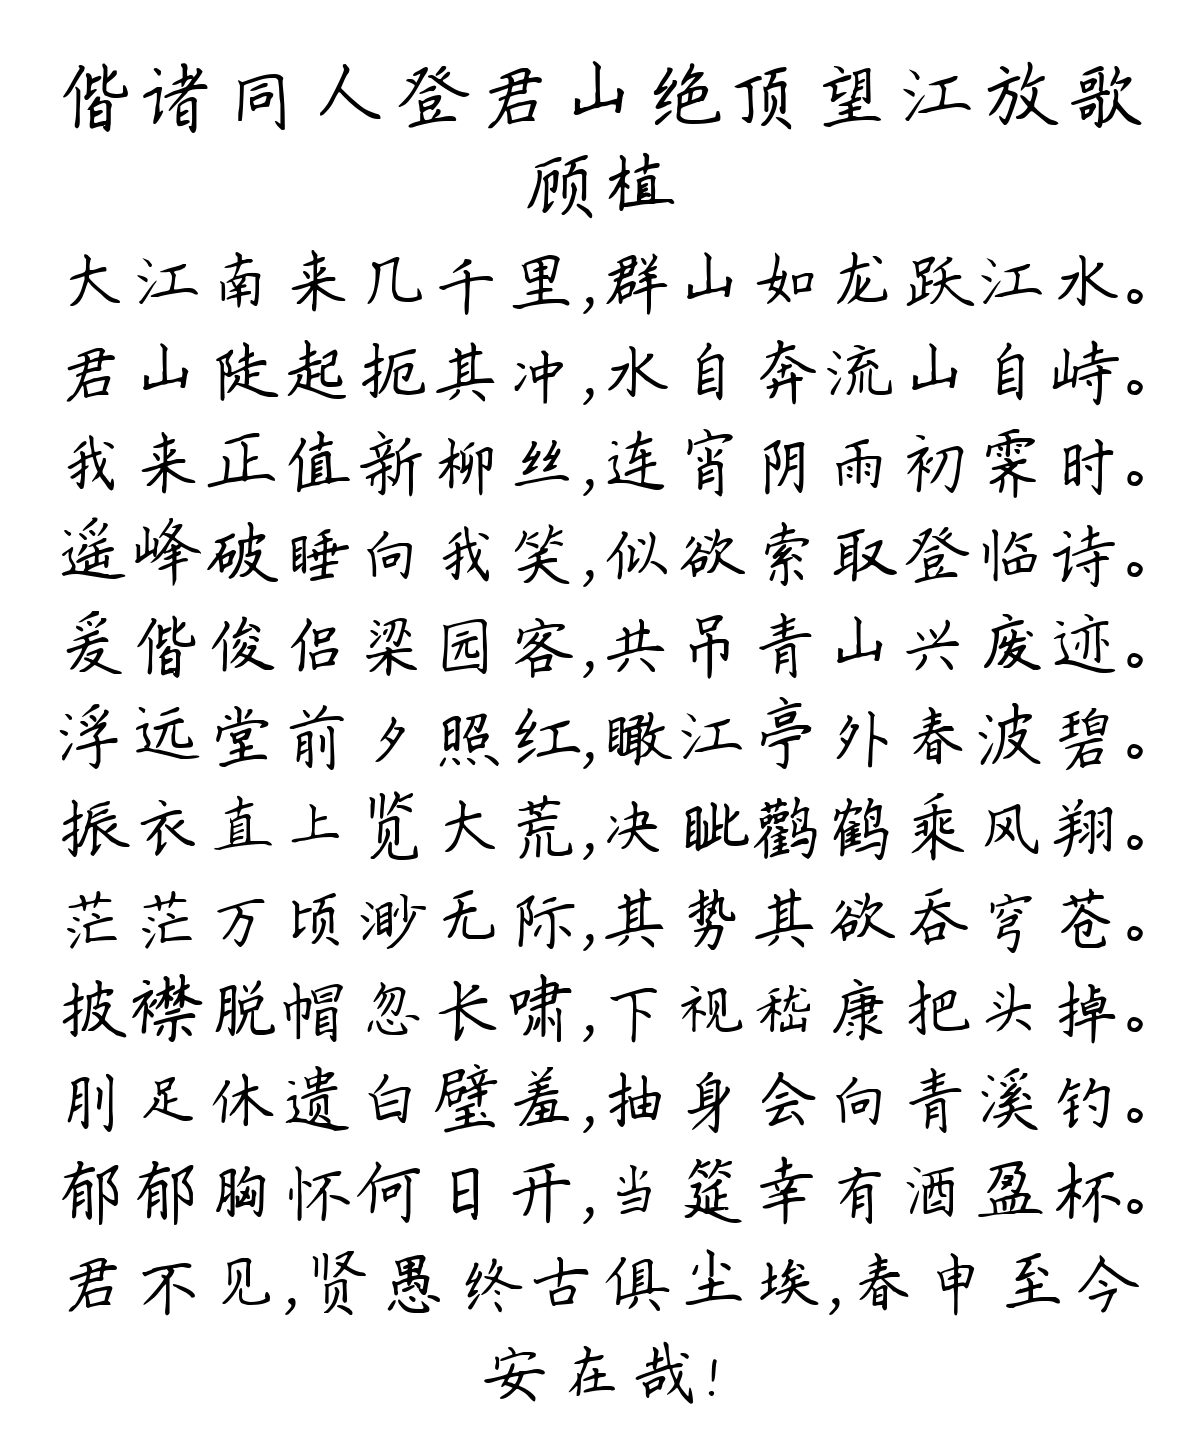 偕诸同人登君山绝顶望江放歌
顾植
大江南来几千里,群山如龙跃江水。
君山陡起扼其冲,水自奔流山自峙。
我来正值新柳丝,连宵阴雨初霁时。
遥峰破睡向我笑,似欲索取登临诗。
爰偕俊侣梁园客,共吊青山兴废迹。
浮远堂前夕照红,瞰江亭外春波碧。
振衣直上览大荒,决眦鹳鹤乘风翔。
茫茫万顷渺无际,其势其欲吞穹苍。
披襟脱帽忽长啸,下视嵇康把头掉。
刖足休遗白璧羞,抽身会向青溪钓。
郁郁胸怀何日开,当筵幸有酒盈杯。
君不见,贤愚终古俱尘埃,春申至今
安在哉!